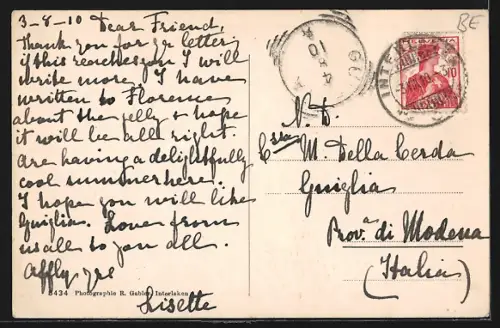 3-8-10
Dear Friend,
Thank you for yr letter
if this reaches you I will
write more. I have
written to Florence
about the jelly & hope
it will be all right.
Are having a delightfully
cool summer here.
I hope you will like
Guiglia. Love from
us all to you all.
Affly yrs
Lisette
8434 Photographie R. Gabler, Interlaken
BE
10
N. D.
Cssa M. Della Cerda
Guiglia
Prov.a di Modena
(Italia)